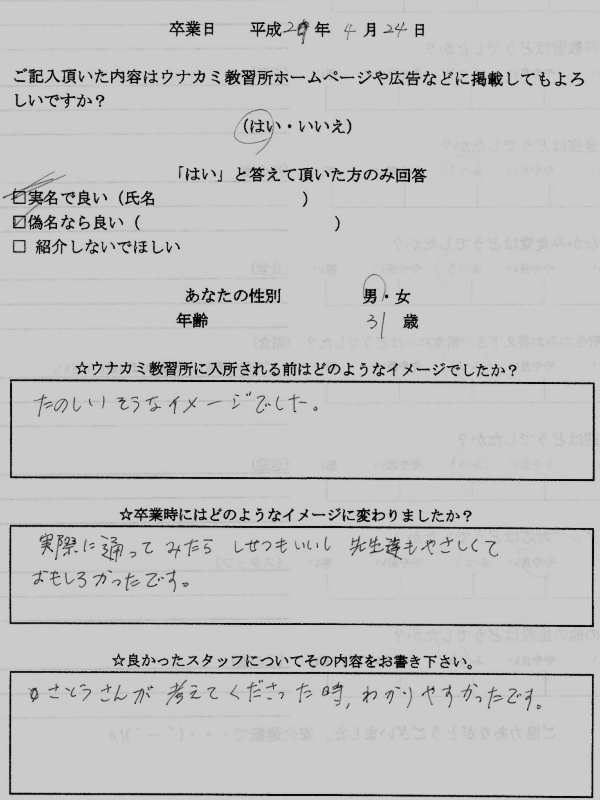 卒業日 平成 年 4月24日
ご記入頂いた内容はウナカミ教習所ホームページや広告などに掲載してもよろ
しいですか？
(はい・いいえ)
「はい」と答えて頂いた方のみ回答
☑実名で良い（氏名 ）
☑偽名なら良い（ ）
□ 紹介しないでほしい
あなたの性別 男・女
年齢 31 歳
☆ウナカミ教習所に入所される前はどのようなイメージでしたか？
たのしいそうなイメージでした。
☆卒業時にはどのようなイメージに変わりましたか？
実際に通ってみたら しせつもいいし 先生達もやさしくて
おもしろかったです。
☆良かったスタッフについてその内容をお書き下さい。
さとうさんが 考えてくださった時, わかりやすかったです。